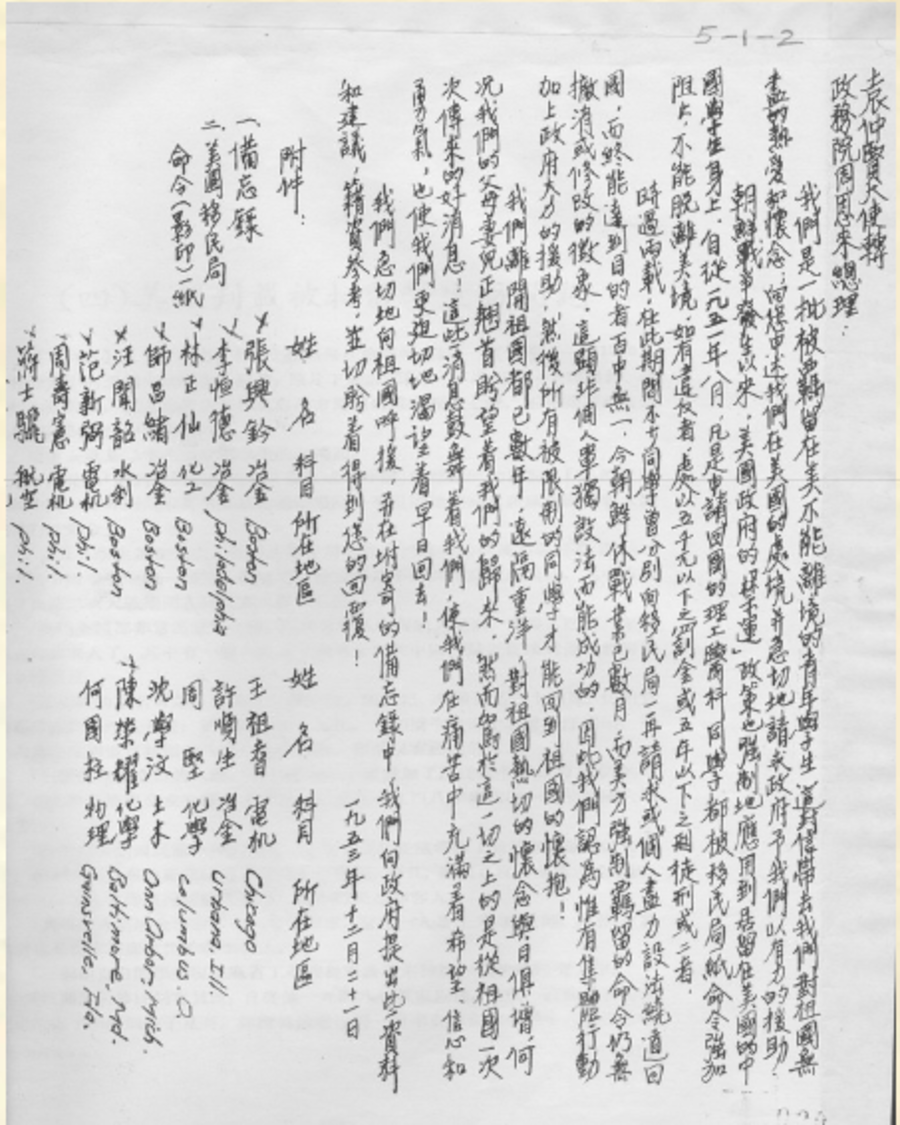 5-1-2
袁仲賢大使轉
政務院周恩來總理：
我們是一批被羈留在美不能離境的青年學生，這封信帶去我們對祖國無
盡的熱愛和懷念，向您申述我們在美國的處境，并急切地請求政府予我們以有力的援助。
朝鮮戰爭發生以來，美國政府的“禁運”政策也強制地應用到居留在美國的中
國學生身上，自從一九五一年八月，凡是申請回國的理工醫科同學都被移民局一紙命令強加
阻止，不能脫離美境，如有違反者，處以五千元以下之罰金或五年以下之徒刑或二者。
時過兩載，在此期間不少同學曾分別向移民局一再請求或個人盡力設法繞道回
國，而終能達到目的者百中無一，今朝鮮休戰業已數月，而美方強制羈留的命令仍無
撤消或修改的徵象，這顯非個人單獨設法而能成功的，因此我們認為惟有集體行動
加上政府大力的援助，然後所有被限制的同學才能回到祖國的懷抱！
我們離開祖國都已數年，遠隔重洋，對祖國熱切的懷念與日俱增，何
況我們的父母妻兒正翹首盼望着我們的歸來，然而加於這一切之上的是從祖國一次
次傳來的好消息，這些消息鼓舞着我們，使我們在痛苦中充滿着希望、信心和
勇氣，也使我們更迫切地渴望着早日回去！
我們急切地向祖國呼援，并在附寄的備忘錄中，我們向政府提出些資料
和建議，藉資參考，並切盼着得到您的回覆！ 一九五三年十二月十一日
附件：
一、備忘錄
二、美國移民局
命令（影印）一紙
姓 名 科目 所在地區
張興鈐 冶金 Boston
李恒德 冶金 Philadelphia
林正仙 化工 Boston
師昌緒 冶金 Boston
汪聞韶 水利 Boston
范新弼 電机 Phil
周壽憲 電机 Phil.
蔣士騛 航空 Phil.
姓 名 科目 所在地區
王祖耆 電机 Chicago
許順生 冶金 Urbana, Ill.
周 堅 化學 Columbus. O.
沈學汶 土木 Ann Arbor, Mich.
陳榮耀 化學 Baltimore, Md.
何國柱 物理 Gainsville, Fla.